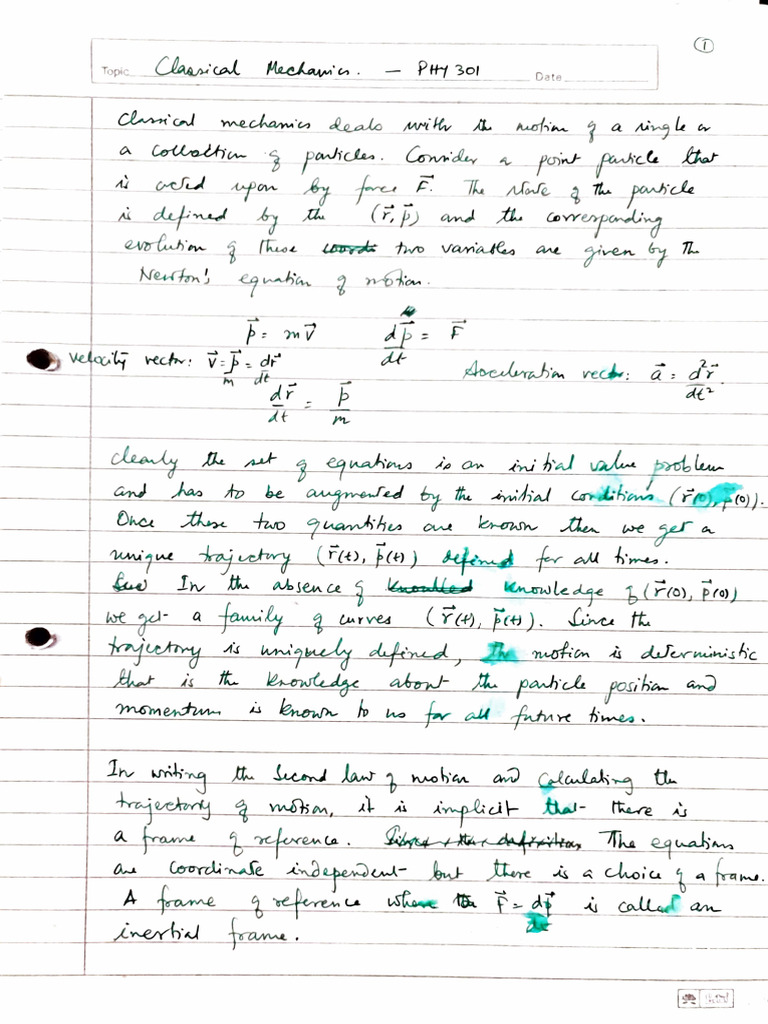 ①
Topic Classical Mechanics. — PHY 301 Date
Classical mechanics deals with the motion of a single or
a collection of particles. Consider a point particle that
is acted upon by force F⃗. The state of the particle
is defined by the (r⃗, p⃗) and the corresponding
evolution of these two variables are given by the
Newton's equation of motion.
p⃗ = m v⃗ dp⃗/dt = F⃗
Velocity vector: v⃗ = p⃗/m = dr⃗/dt Acceleration vector: a⃗ = d²r⃗/dt².
dr⃗/dt = p⃗/m
Clearly the set of equations is an initial value problem
and has to be augmented by the initial conditions (r⃗(0), p⃗(0)).
Once these two quantities are known then we get a
unique trajectory (r⃗(t), p⃗(t)) defined for all times.
In the absence of knowledge of (r⃗(0), p⃗(0))
we get a family of curves (r⃗(t), p⃗(t)). Since the
trajectory is uniquely defined, the motion is deterministic
that is the knowledge about the particle position and
momentum is known to us for all future times.
In writing the second law of motion and calculating the
trajectory of motion, it is implicit that there is
a frame of reference. The equations
are coordinate independent but there is a choice of a frame.
A frame of reference where the F⃗ = dp⃗/dt is called an
inertial frame.